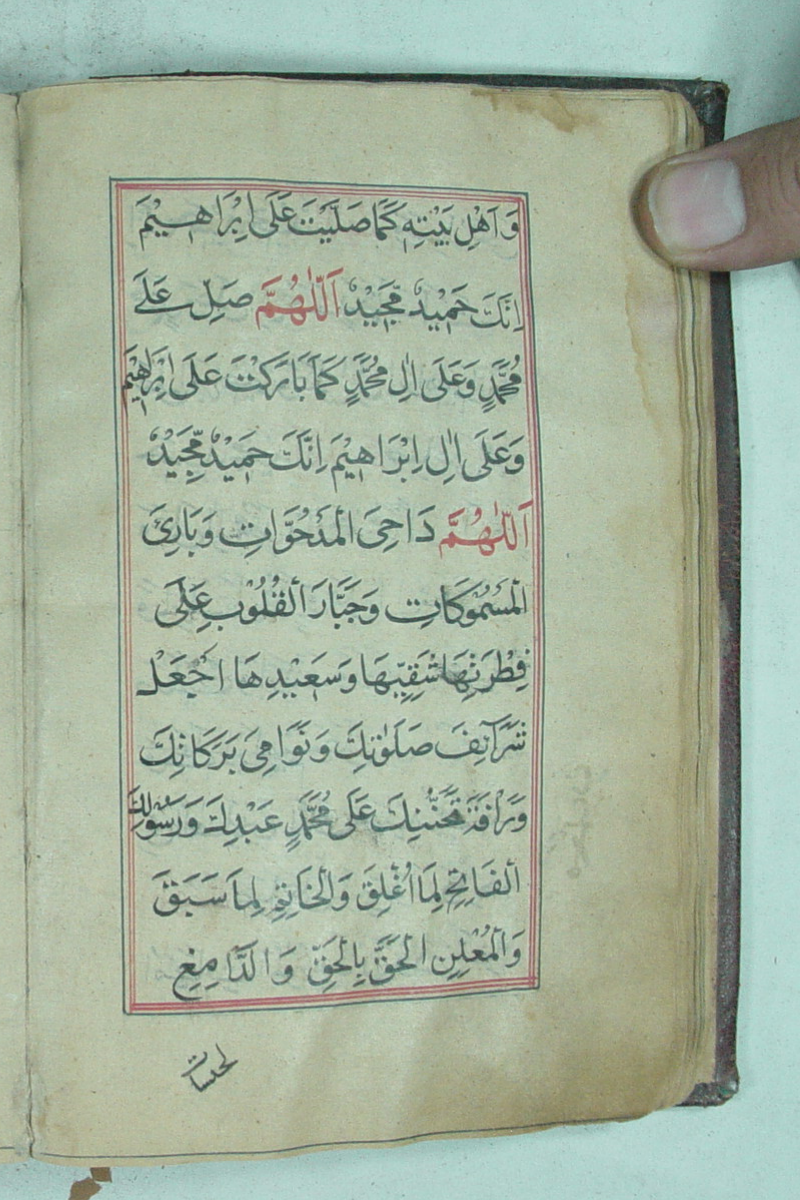 وَاَهْلِ بَيْتِهٖ كَمَا صَلَّيْتَ عَلَى اِبْرَاهِيْمَ
اِنَّكَ حَمِيْدٌ مَّجِيْدٌ اَللّٰهُمَّ صَلِّ عَلٰى
مُحَمَّدٍ وَعَلَى اٰلِ مُحَمَّدٍ كَمَا بَارَكْتَ عَلَى اِبْرَاهِيْمَ
وَعَلَى اٰلِ اِبْرَاهِيْمَ اِنَّكَ حَمِيْدٌ مَّجِيْدٌ
اَللّٰهُمَّ دَاحِىَ الْمَدْحُوَّاتِ وَبَارِئَ
الْمَسْمُوكَاتِ وَجَبَّارَ الْقُلُوْبِ عَلَى
فِطْرَتِهَا شَقِيِّهَا وَسَعِيْدِهَا اجْعَلْ
شَرَآئِفَ صَلَوٰتِكَ وَنَوَامِىَ بَرَكَاتِكَ
وَرَاْفَةَ تَحَنُّنِكَ عَلَى مُحَمَّدٍ عَبْدِكَ وَرَسُوْلِكَ
الْفَاتِحِ لِمَا اُغْلِقَ وَالْخَاتِمِ لِمَا سَبَقَ
وَالْمُعْلِنِ الْحَقَّ بِالْحَقِّ وَالدَّامِغِ
لجيشات